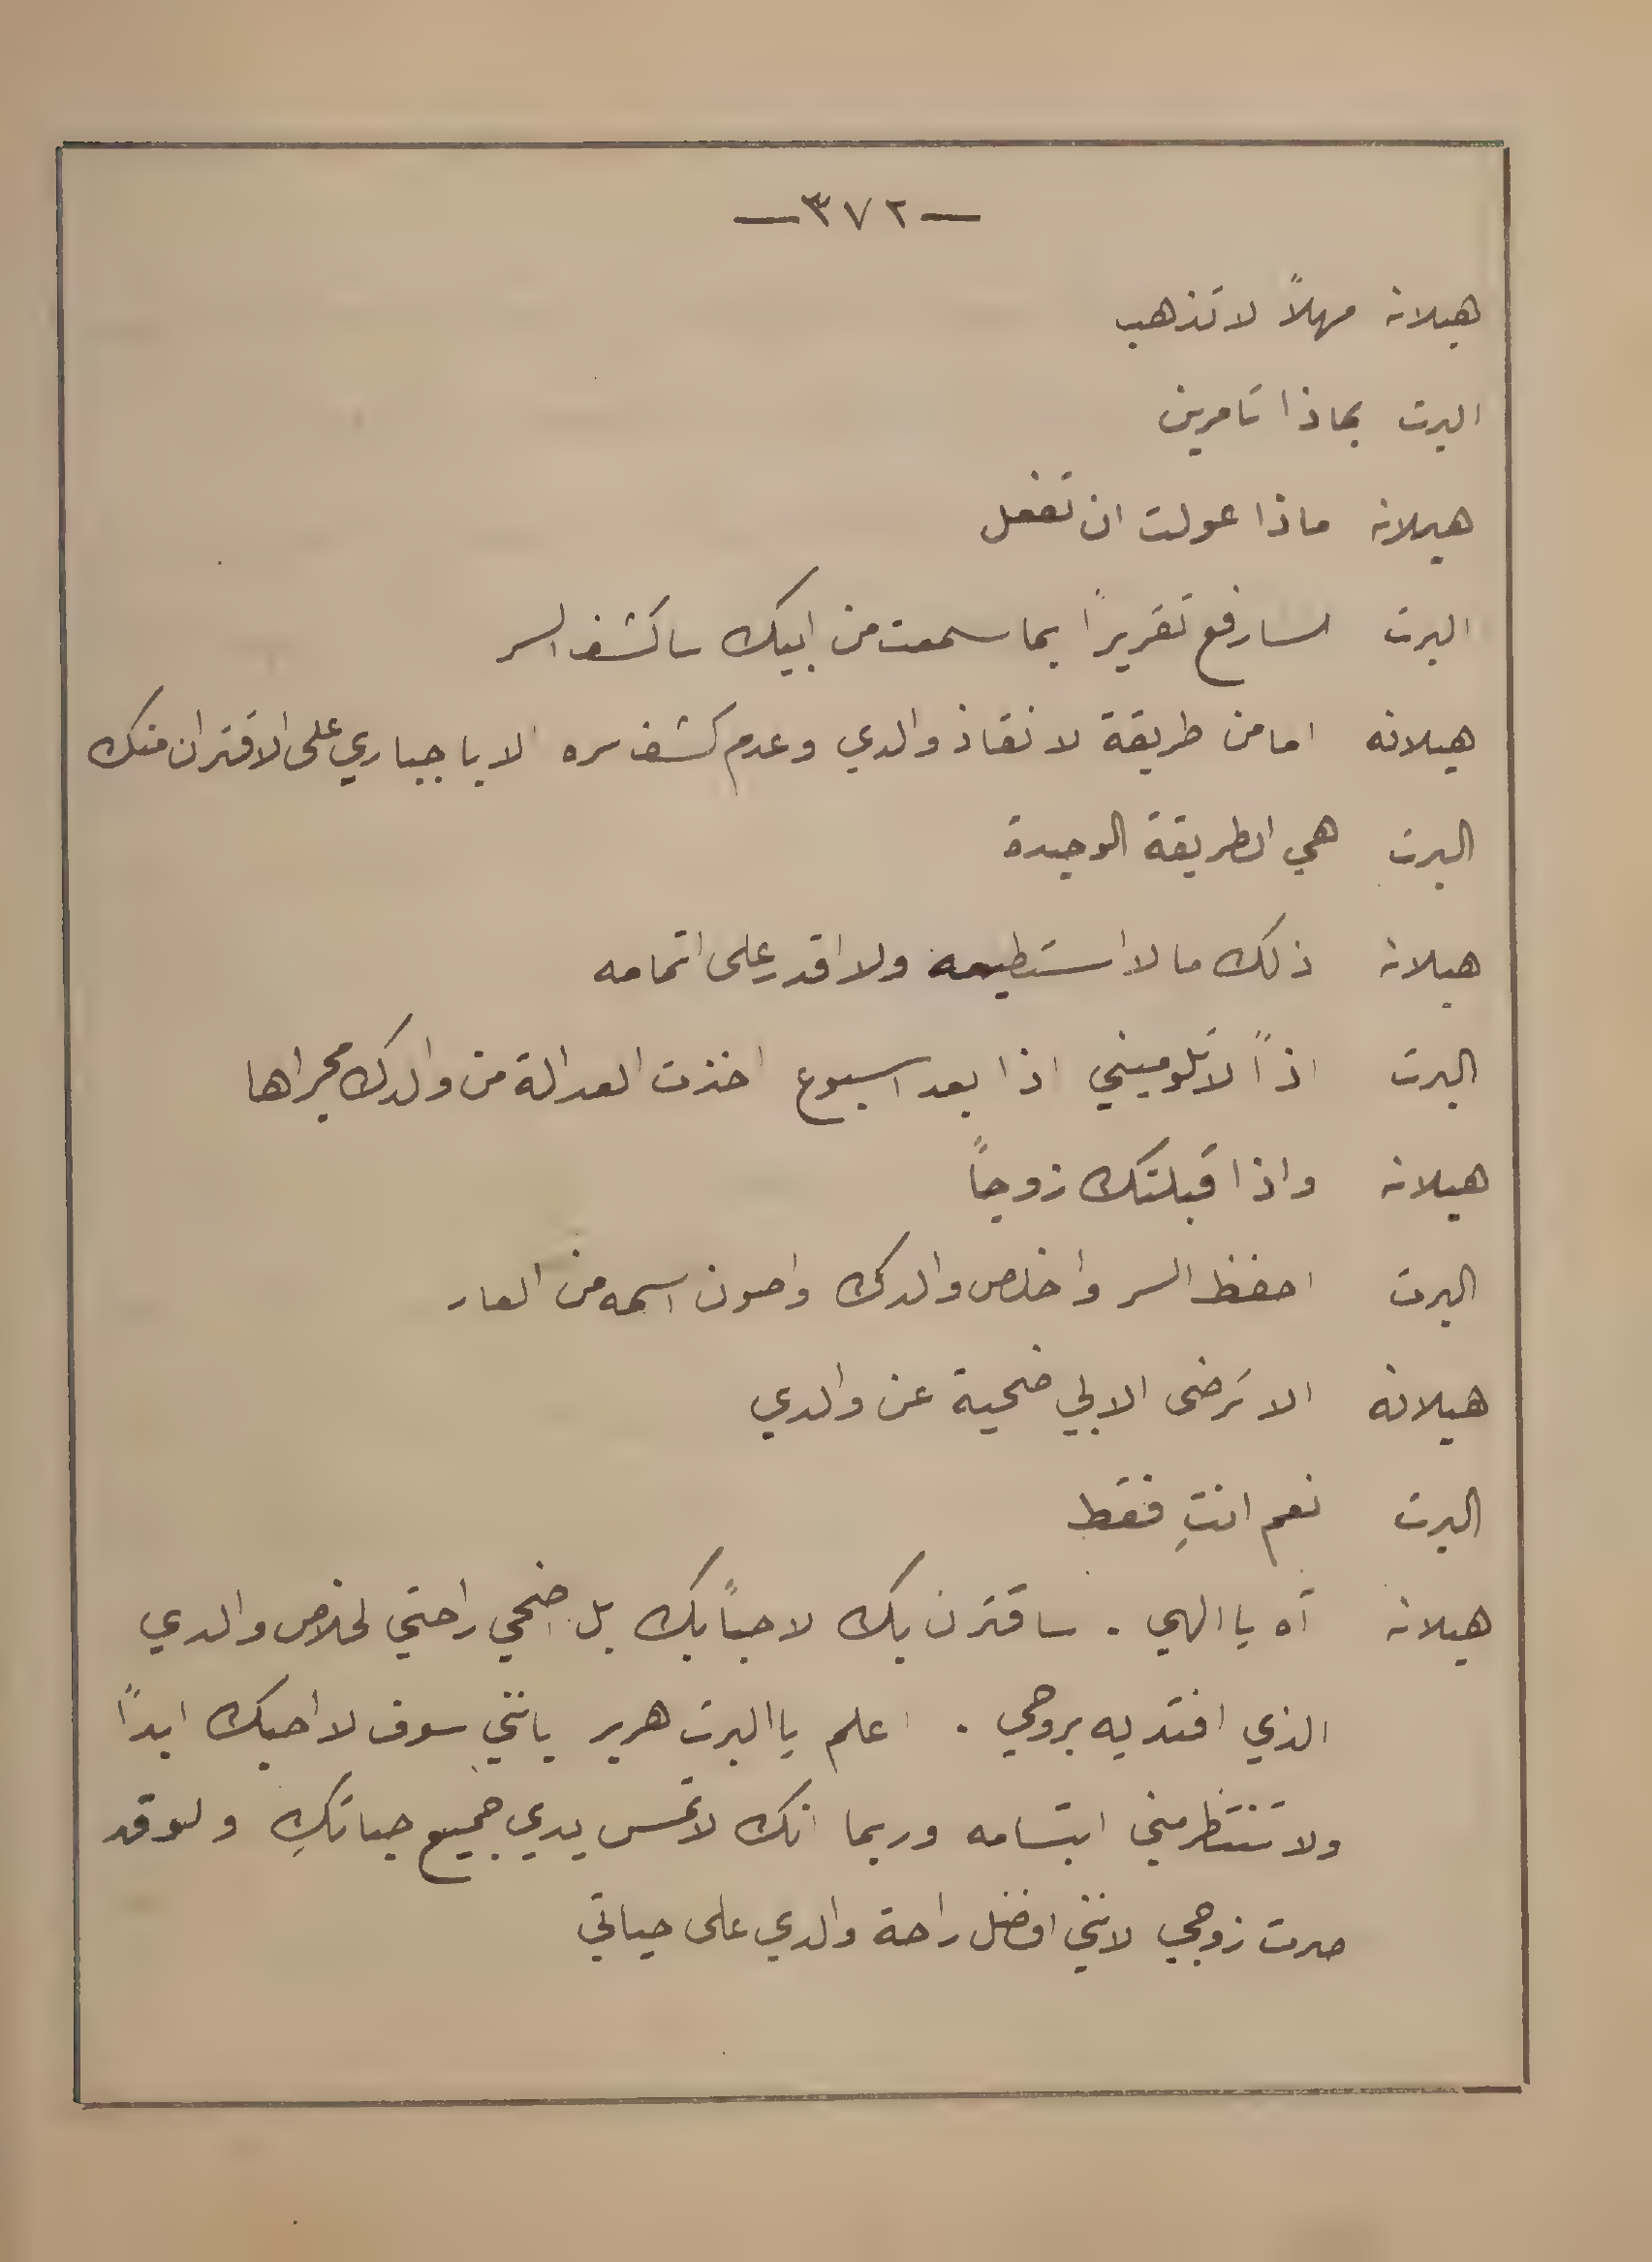 —٣٧٢—
هيلانه مهلاً لا تذهب
البرت بماذا تامرين
هيلانه ماذا عولت ان تفعل
البرت لسارفع تقريراً بما سمعت من ابيك ساكشف السر
هيلانه اما من طريقة لانقاذ والدي وعدم كشف سره الا باجباري على الاقتران منك
البرت هي الطريقة الوحيدة
هيلانه ذلك ما لا استطيعه ولا اقدر على اتمامه
البرت اذاً لا تلوميني اذا بعد اسبوع اخذت العدالة من والدك مجراها
هيلانه واذا قبلتك زوجاً
البرت احفظ السر واخلص والدك واصون اسمه من العار
هيلانه الا ترضى الا بي ضحية عن والدي
البرت نعم انتِ فقط
هيلانه آه يا الهي . ساقترن بك لا حباً بك بل اضحي راحتي لخلاص والدي
الذي افتديه بروحي . اعلم يا البرت هرير بانني سوف لا احبك ابداً
ولا تنتظر مني ابتسامه وربما انك لا تمس يدي جميع حياتكِ ولو قد
صرت زوجي لانني افضل راحة والدي على حياتي